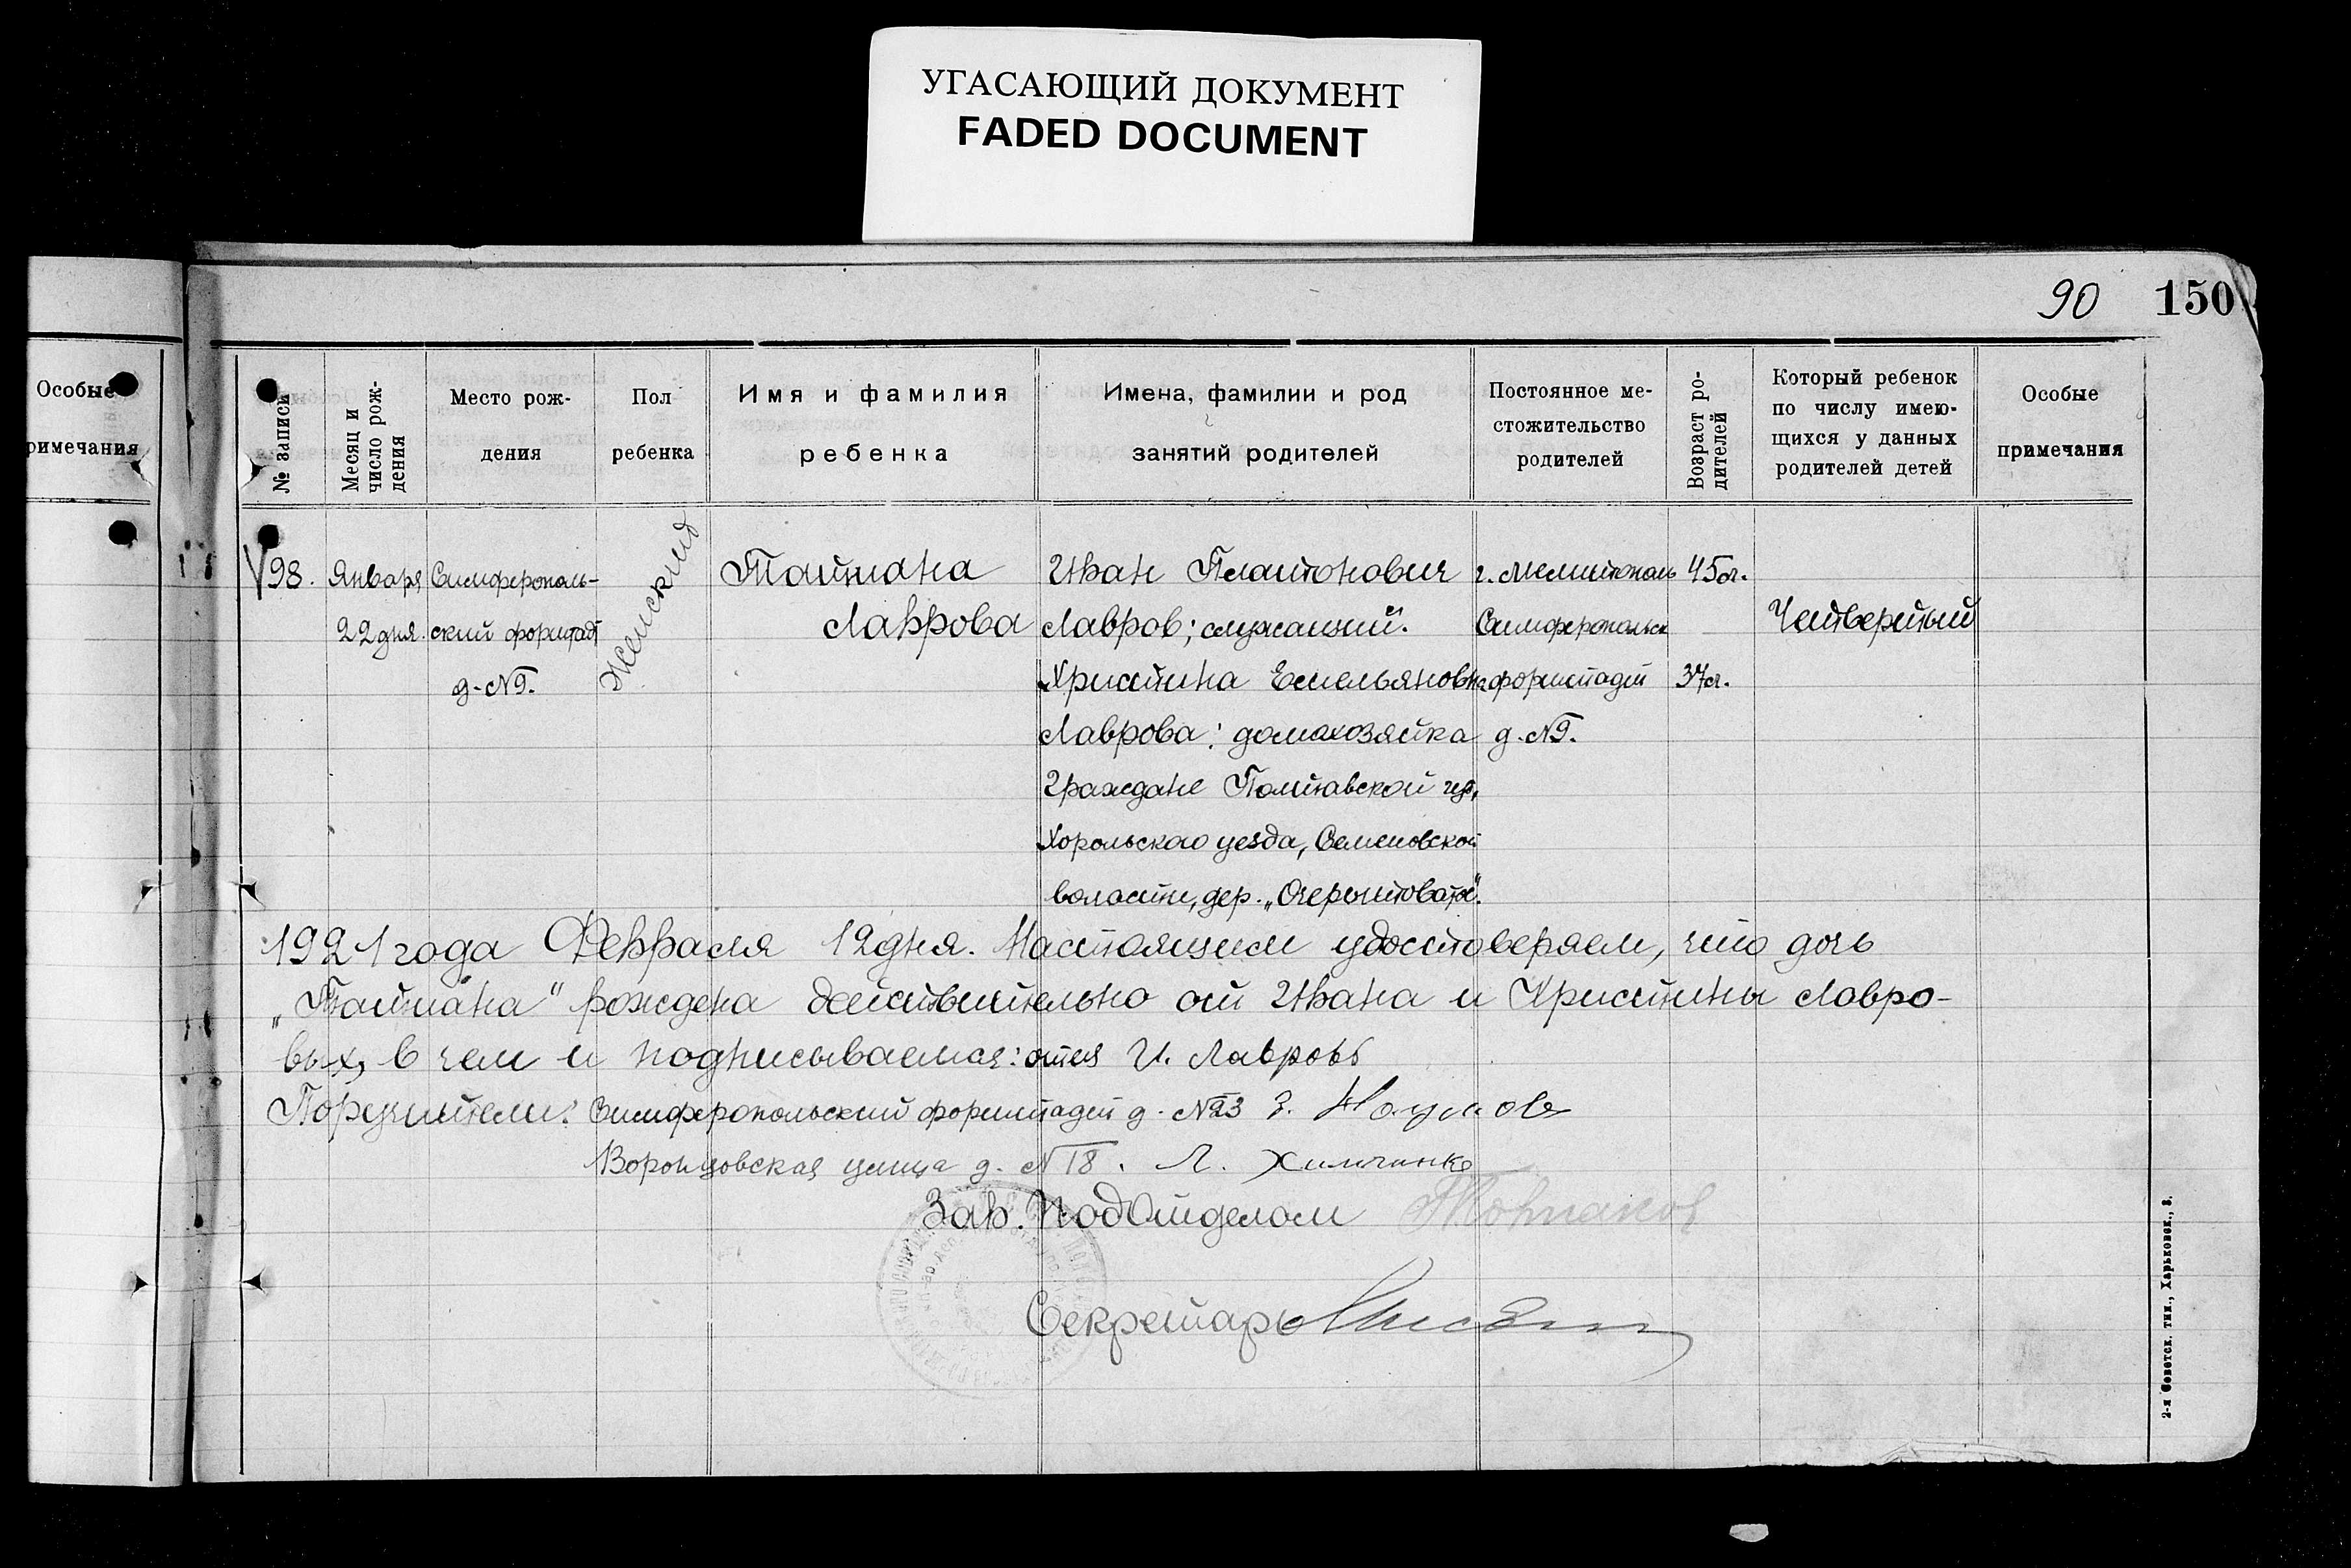 УГАСАЮЩИЙ ДОКУМЕНТ
FADED DOCUMENT
90 150
Особые
римечания
№ записи
Месяц и
число рож-
дения
Место рож-
дения
Пол
ребенка
Имя и фамилия
ребенка
Имена, фамилии и род
занятий родителей
Постоянное ме-
стожительство
родителей
Возраст ро-
дителей
Который ребенок
по числу имею-
щихся у данных
родителей детей
Особые
примечания
98.
Января
22 дня.
Симферополь-
ский форштадт
д. №9.
Женский
Татиана
Лаврова
Иван Платонович
Лавров; служащий.
Христина Емельяновна
Лаврова: домахозяйка
Граждане Полтавской губ,
Хорольскаго уезда, Семеновской
воласти, дер.
г. Мелитополь
Симферопольск
форштадт
д. №9.
45 л.
37 л.
Четвертый
1921 года Февраля 12 дня. Настоящим удостоверяем, что дочь
„Татиана" рождена действительно от Ивана и Христины Лавро-
вых, в чем и подписываемся: отец И. Лавровъ
Поручители: Симферопольский форштадт д. №23 З. Наумов
Воронцовская улица д. №18. Л.
Зав. ПодОтделом
Секретарь
2-я Советск. тип., Харьковск., 8.